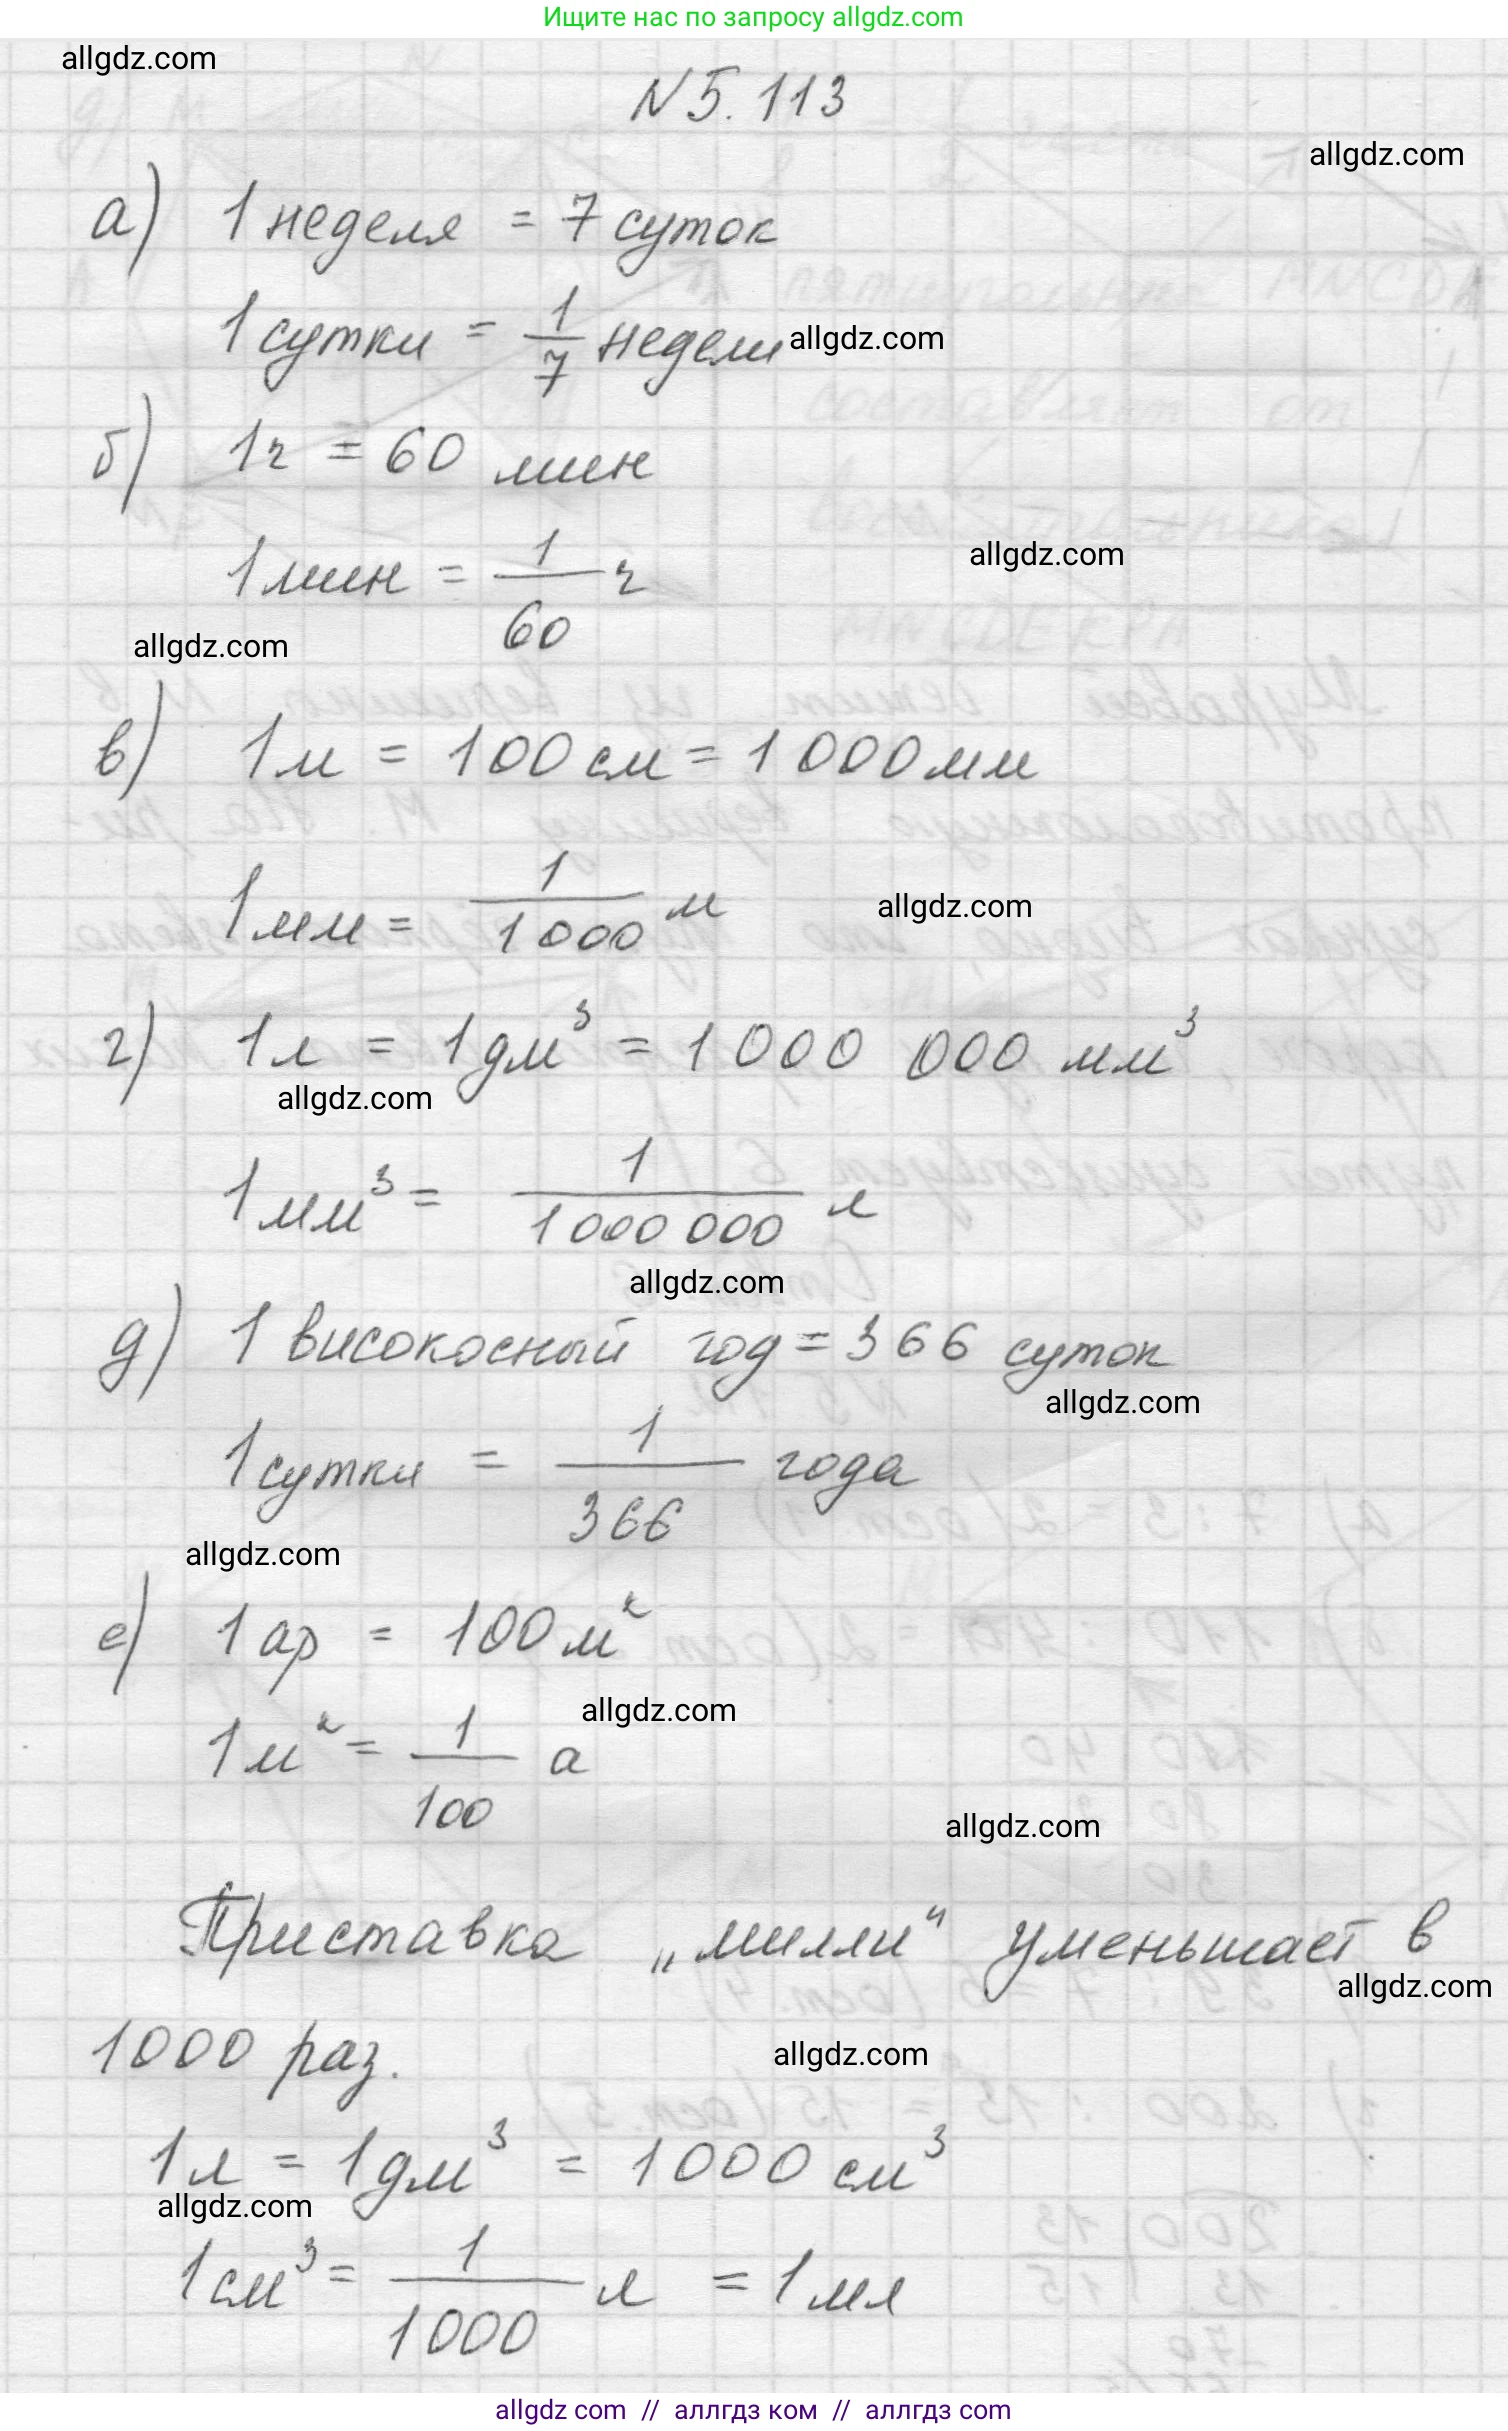 Ищите нас по запросу allgdz.com
allgdz.com
N 5.113
allgdz.com
а) 1 неделя = 7 суток
1 сутки = 1/7 недели
allgdz.com
б) 1ч = 60 мин
1 мин = 1/60 ч
allgdz.com
allgdz.com
в) 1 м = 100 см = 1 000 мм
1 мм = 1/1 000 м
allgdz.com
г) 1 л = 1 дм³ = 1 000 000 мм³
allgdz.com
1 мм³ = 1/1 000 000 л
allgdz.com
д) 1 високосный год = 366 суток
allgdz.com
1 сутки = 1/366 года
allgdz.com
е) 1 ар = 100 м²
allgdz.com
1 м² = 1/100 а
allgdz.com
Приставка „милли" уменьшает в
allgdz.com
1000 раз.
allgdz.com
1 л = 1 дм³ = 1000 см³
allgdz.com
1 см³ = 1/1000 л = 1 мл
allgdz com // аллгдз ком // аллгдз com